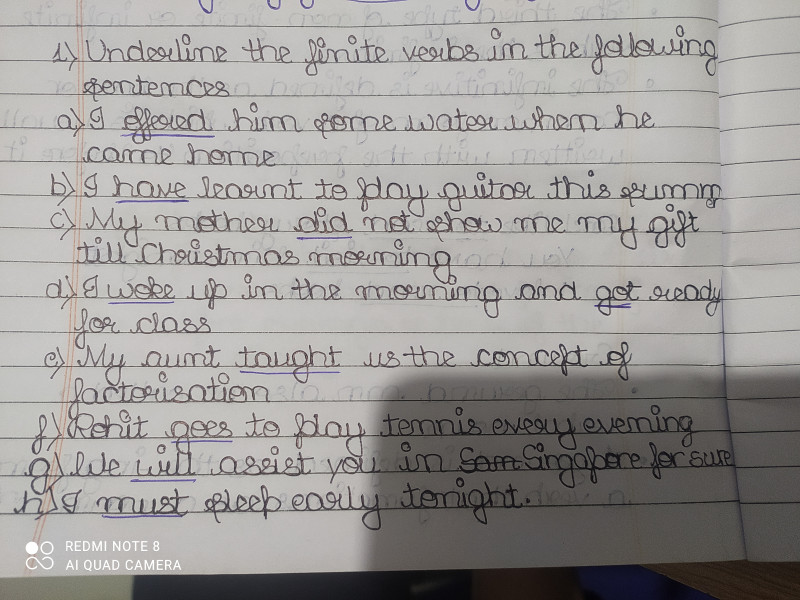 1) Underline the finite verbs in the following
sentences
a) I offered him some water when he
came home
b) I have learnt to play guitar this summ
c) My mother did not show me my gift
till Christmas morning
d) I woke up in the morning and got ready
for class
e) My aunt taught us the concept of
factorisation
f) Rohit goes to play tennis every evening
g) We will assist you in Singapore for sure
h) I must sleep early tonight.
REDMI NOTE 8
AI QUAD CAMERA